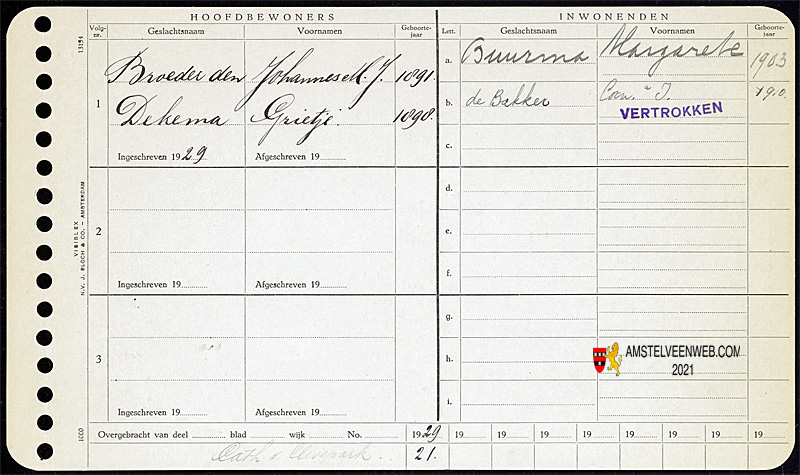 HOOFDBEWONERS
INWONENDEN
Volg-nr.
Geslachtsnaam
Voornamen
Geboorte-jaar
Lett.
Geslachtsnaam
Voornamen
Geboorte-jaar
13194
1
Broeder den
Johannes M. J.
1891.
Dekema
Grietje.
1898.
Ingeschreven 1929
Afgeschreven 19
a.
Buurma
Margarete
1903
b.
de Bakker
Corn.
J.
VERTROKKEN
c.
2
Ingeschreven 19
Afgeschreven 19
d.
e.
f.
3
Ingeschreven 19
Afgeschreven 19
g.
h.
i.
AMSTELVEENWEB.COM
2021
VISIBLEX
N.V. J. BLOCH & CO. – AMSTERDAM
Overgebracht van deel blad wijk No.
1929
19
19
19
19
19
19
19
21.